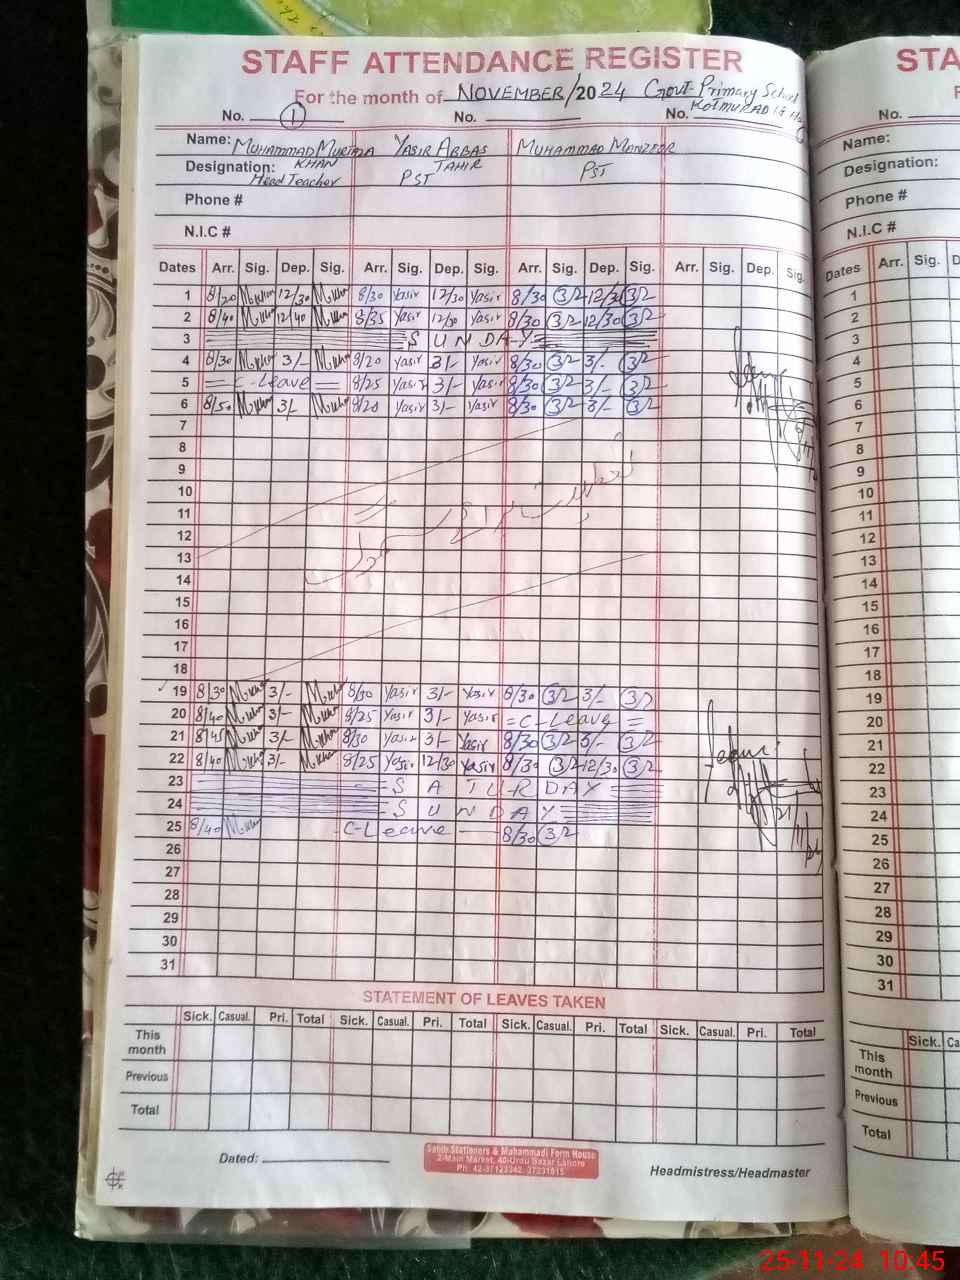 STAFF ATTENDANCE REGISTER
For the month of NOVEMBER/2024 Govt. Primary School
No. 1 No. No. KOTMURAD
Name: MUHAMMAD MURTAZA YASIR ABBAS MUHAMMAD MANZOOR
Designation: KHAN TAHIR
Head Teacher PST PST
Phone #
N.I.C #
Dates Arr. Sig. Dep. Sig. Arr. Sig. Dep. Sig. Arr. Sig. Dep. Sig. Arr. Sig. Dep. Sig.
1 8/20 M.Khan 12/30 M.Khan 8/30 Yasir 12/30 Yasir 8/30 12/30
2 8/40 M.Khan 12/40 M.Khan 8/35 Yasir 12/30 Yasir 8/30 12/30
3 SUNDAY
4 8/30 M.Khan 3/- M.Khan 8/20 Yasir 3/- Yasir 8/30 3/-
5 = C-Leave = 8/25 Yasir 3/- Yasir 8/30 3/-
6 8/50 M.Khan 3/- M.Khan 8/20 Yasir 3/- Yasir 8/30 3/-
7
8
9
10
11
12
13
14
15
16
17
18
19 8/30 M.Khan 3/- M.Khan 8/30 Yasir 3/- Yasir 8/30 3/-
20 8/40 M.Khan 3/- M.Khan 8/25 Yasir 3/- Yasir = C-Leave =
21 8/45 M.Khan 3/- M.Khan 8/30 Yasir 3/- Yasir 8/30 3/-
22 8/40 M.Khan 3/- M.Khan 8/25 Yasir 12/30 Yasir 8/30 12/30
23 SATURDAY
24 SUNDAY
25 8/40 M.Khan - C-Leave - 8/30
26
27
28
29
30
31
STATEMENT OF LEAVES TAKEN
Sick. Casual. Pri. Total Sick. Casual. Pri. Total Sick. Casual. Pri. Total Sick. Casual. Pri. Total
This month
Previous
Total
Dated:
Sahib Stationers & Muhammadi Form House
2-Main Market, 40-Urdu Bazar Lahore
Ph: 42-37123342, 37231815
Headmistress/Headmaster
STA
No.
Name:
Designation:
Phone #
N.I.C #
Dates Arr. Sig. D
1
2
3
4
5
6
7
8
9
10
11
12
13
14
15
16
17
18
19
20
21
22
23
24
25
26
27
28
29
30
31
Sick. Ca
This month
Previous
Total
25-11-24 10:45